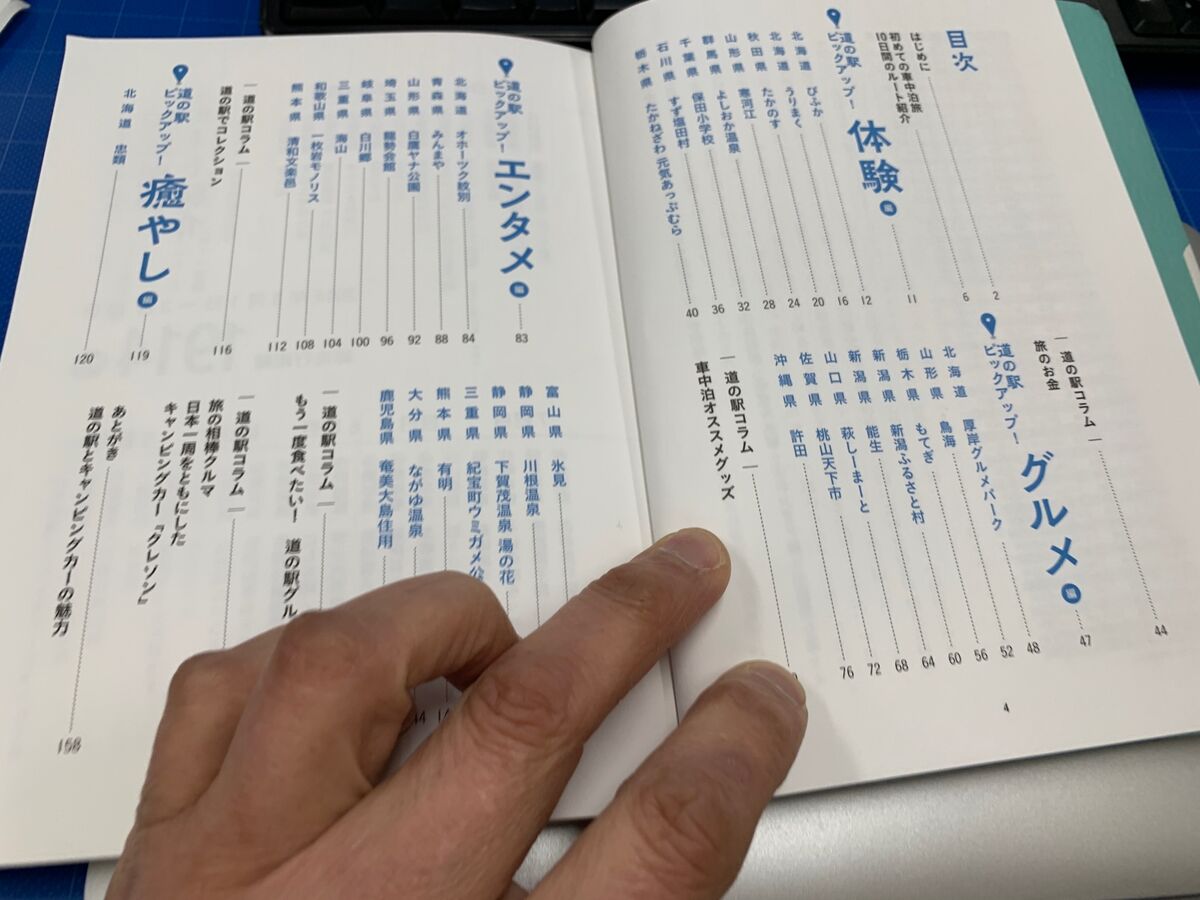 目次
はじめに 2
初めての車中泊旅
10日間のルート紹介 6
道の駅
ピックアップ! 体験編 11
北海道 びふか 12
北海道 うりまく 16
秋田県 たかのす 20
山形県 寒河江 24
群馬県 よしおか温泉 28
千葉県 保田小学校 32
石川県 すず塩田村 36
栃木県 たかねざわ 元気あっぷむら 40
― 道の駅コラム ―
旅のお金 44
道の駅
ピックアップ! グルメ編 47
北海道 厚岸グルメパーク 48
山形県 鳥海 52
栃木県 もてぎ 56
新潟県 新潟ふるさと村 60
新潟県 能生 64
山口県 萩しーまーと 68
佐賀県 桃山天下市 72
沖縄県 許田 76
― 道の駅コラム ―
車中泊オススメグッズ
4
道の駅
ピックアップ! エンタメ編 83
北海道 オホーツク紋別 84
青森県 みんまや 88
山形県 白鷹ヤナ公園 92
埼玉県 龍勢会館 96
岐阜県 白川郷 100
三重県 海山 104
和歌山県 一枚岩モノリス 108
熊本県 清和文楽邑 112
― 道の駅コラム ―
道の駅でコレクション 116
道の駅
ピックアップ! 癒やし編 119
北海道 忠類 120
富山県 氷見
静岡県 川根温泉
静岡県 下賀茂温泉 湯の花
三重県 紀宝町ウミガメ公
熊本県 有明
大分県 ながゆ温泉
鹿児島県 奄美大島住用
― 道の駅コラム ―
もう一度食べたい! 道の駅グル
― 道の駅コラム ―
旅の相棒クルマ
日本一周をともにした
キャンピングカー『クレソン』
あとがき
道の駅とキャンピングカーの魅力 158